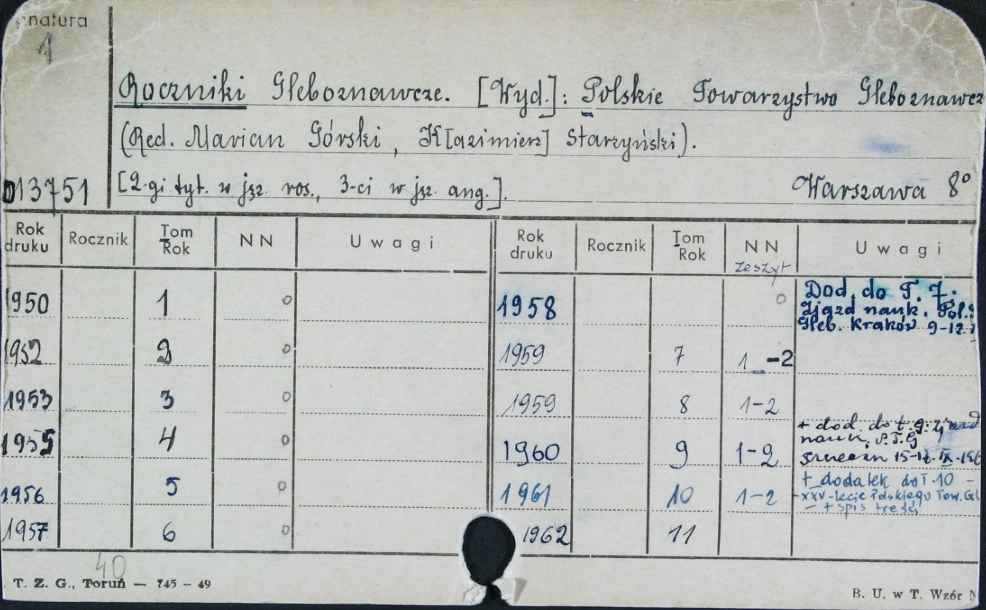 natura
1
Roczniki Gleboznawcze. [Wyd.]: Polskie Towarzystwo Gleboznawcz
(Red. Marian Górski, K[azimierz] Starzyński).
013751 [2-gi tyt. w jęz. ros., 3-ci w jęz. ang.]. Warszawa 8°
Rok druku Rocznik Tom Rok NN Uwagi Rok druku Rocznik Tom Rok NN zeszyt Uwagi
1950 1 0 1958 0 Dod. do T. 7.
Zjazd nauk. Pol.
Gleb. Kraków 9-12.
1952 2 0 1959 7 1-2
1953 3 0 1959 8 1-2
1955 4 0 1960 9 1-2 + dod. do t. 9:
nauk. P.T.G
Szczecin 15-17. IX.
1956 5 0 1961 10 1-2 + dodatek do T. 10 -
XXV-lecie Polskiego Tow. Gl
- + spis treści
1957 6 0 1962 11
40
T. Z. G., Toruń — 745 - 49 B. U. w T. Wzór N